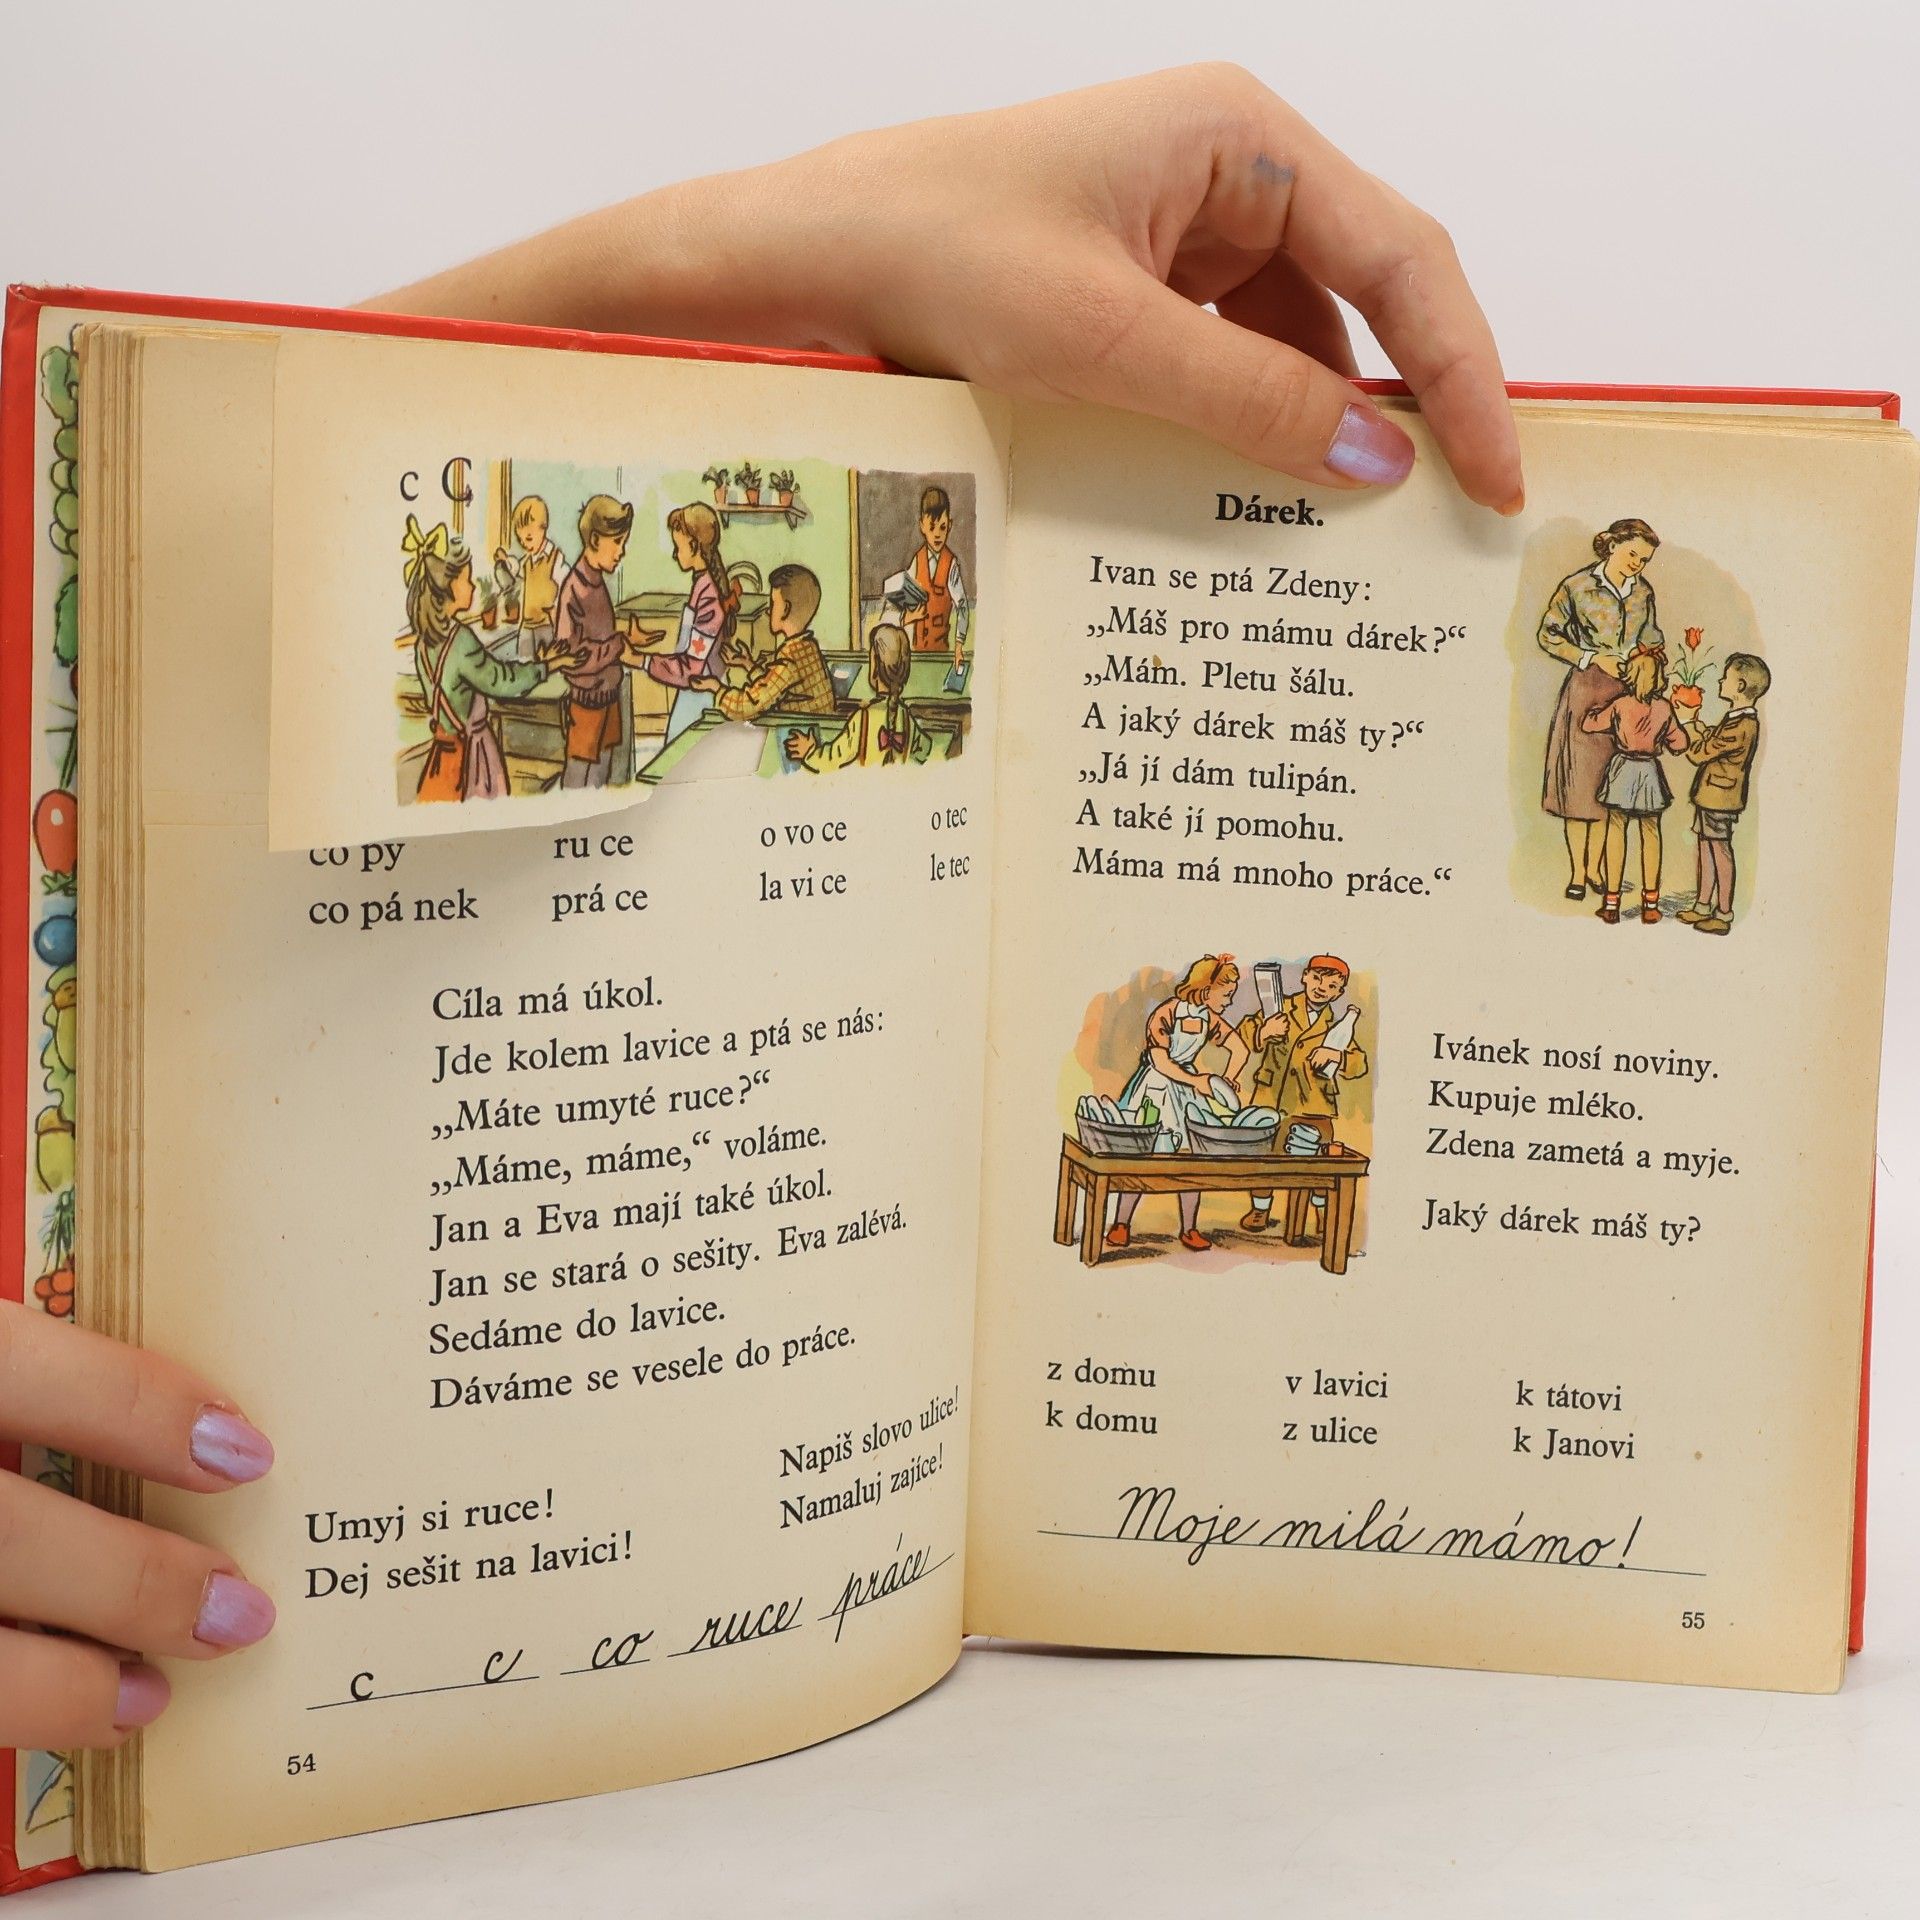 c C
co py ru ce o vo ce o tec
co pá nek prá ce la vi ce le tec
Cíla má úkol.
Jde kolem lavice a ptá se nás:
„Máte umyté ruce?“
„Máme, máme,“ voláme.
Jan a Eva mají také úkol.
Jan se stará o sešity. Eva zalévá.
Sedáme do lavice.
Dáváme se vesele do práce.
Umyj si ruce!
Dej sešit na lavici!
Napiš slovo ulice!
Namaluj zajíce!
c c co ruce práce
54
Dárek.
Ivan se ptá Zdeny:
„Máš pro mámu dárek?“
„Mám. Pletu šálu.
A jaký dárek máš ty?“
„Já jí dám tulipán.
A také jí pomohu.
Máma má mnoho práce.“
Ivánek nosí noviny.
Kupuje mléko.
Zdena zametá a myje.
Jaký dárek máš ty?
z domu v lavici k tátovi
k domu z ulice k Janovi
Moje milá mámo!
55